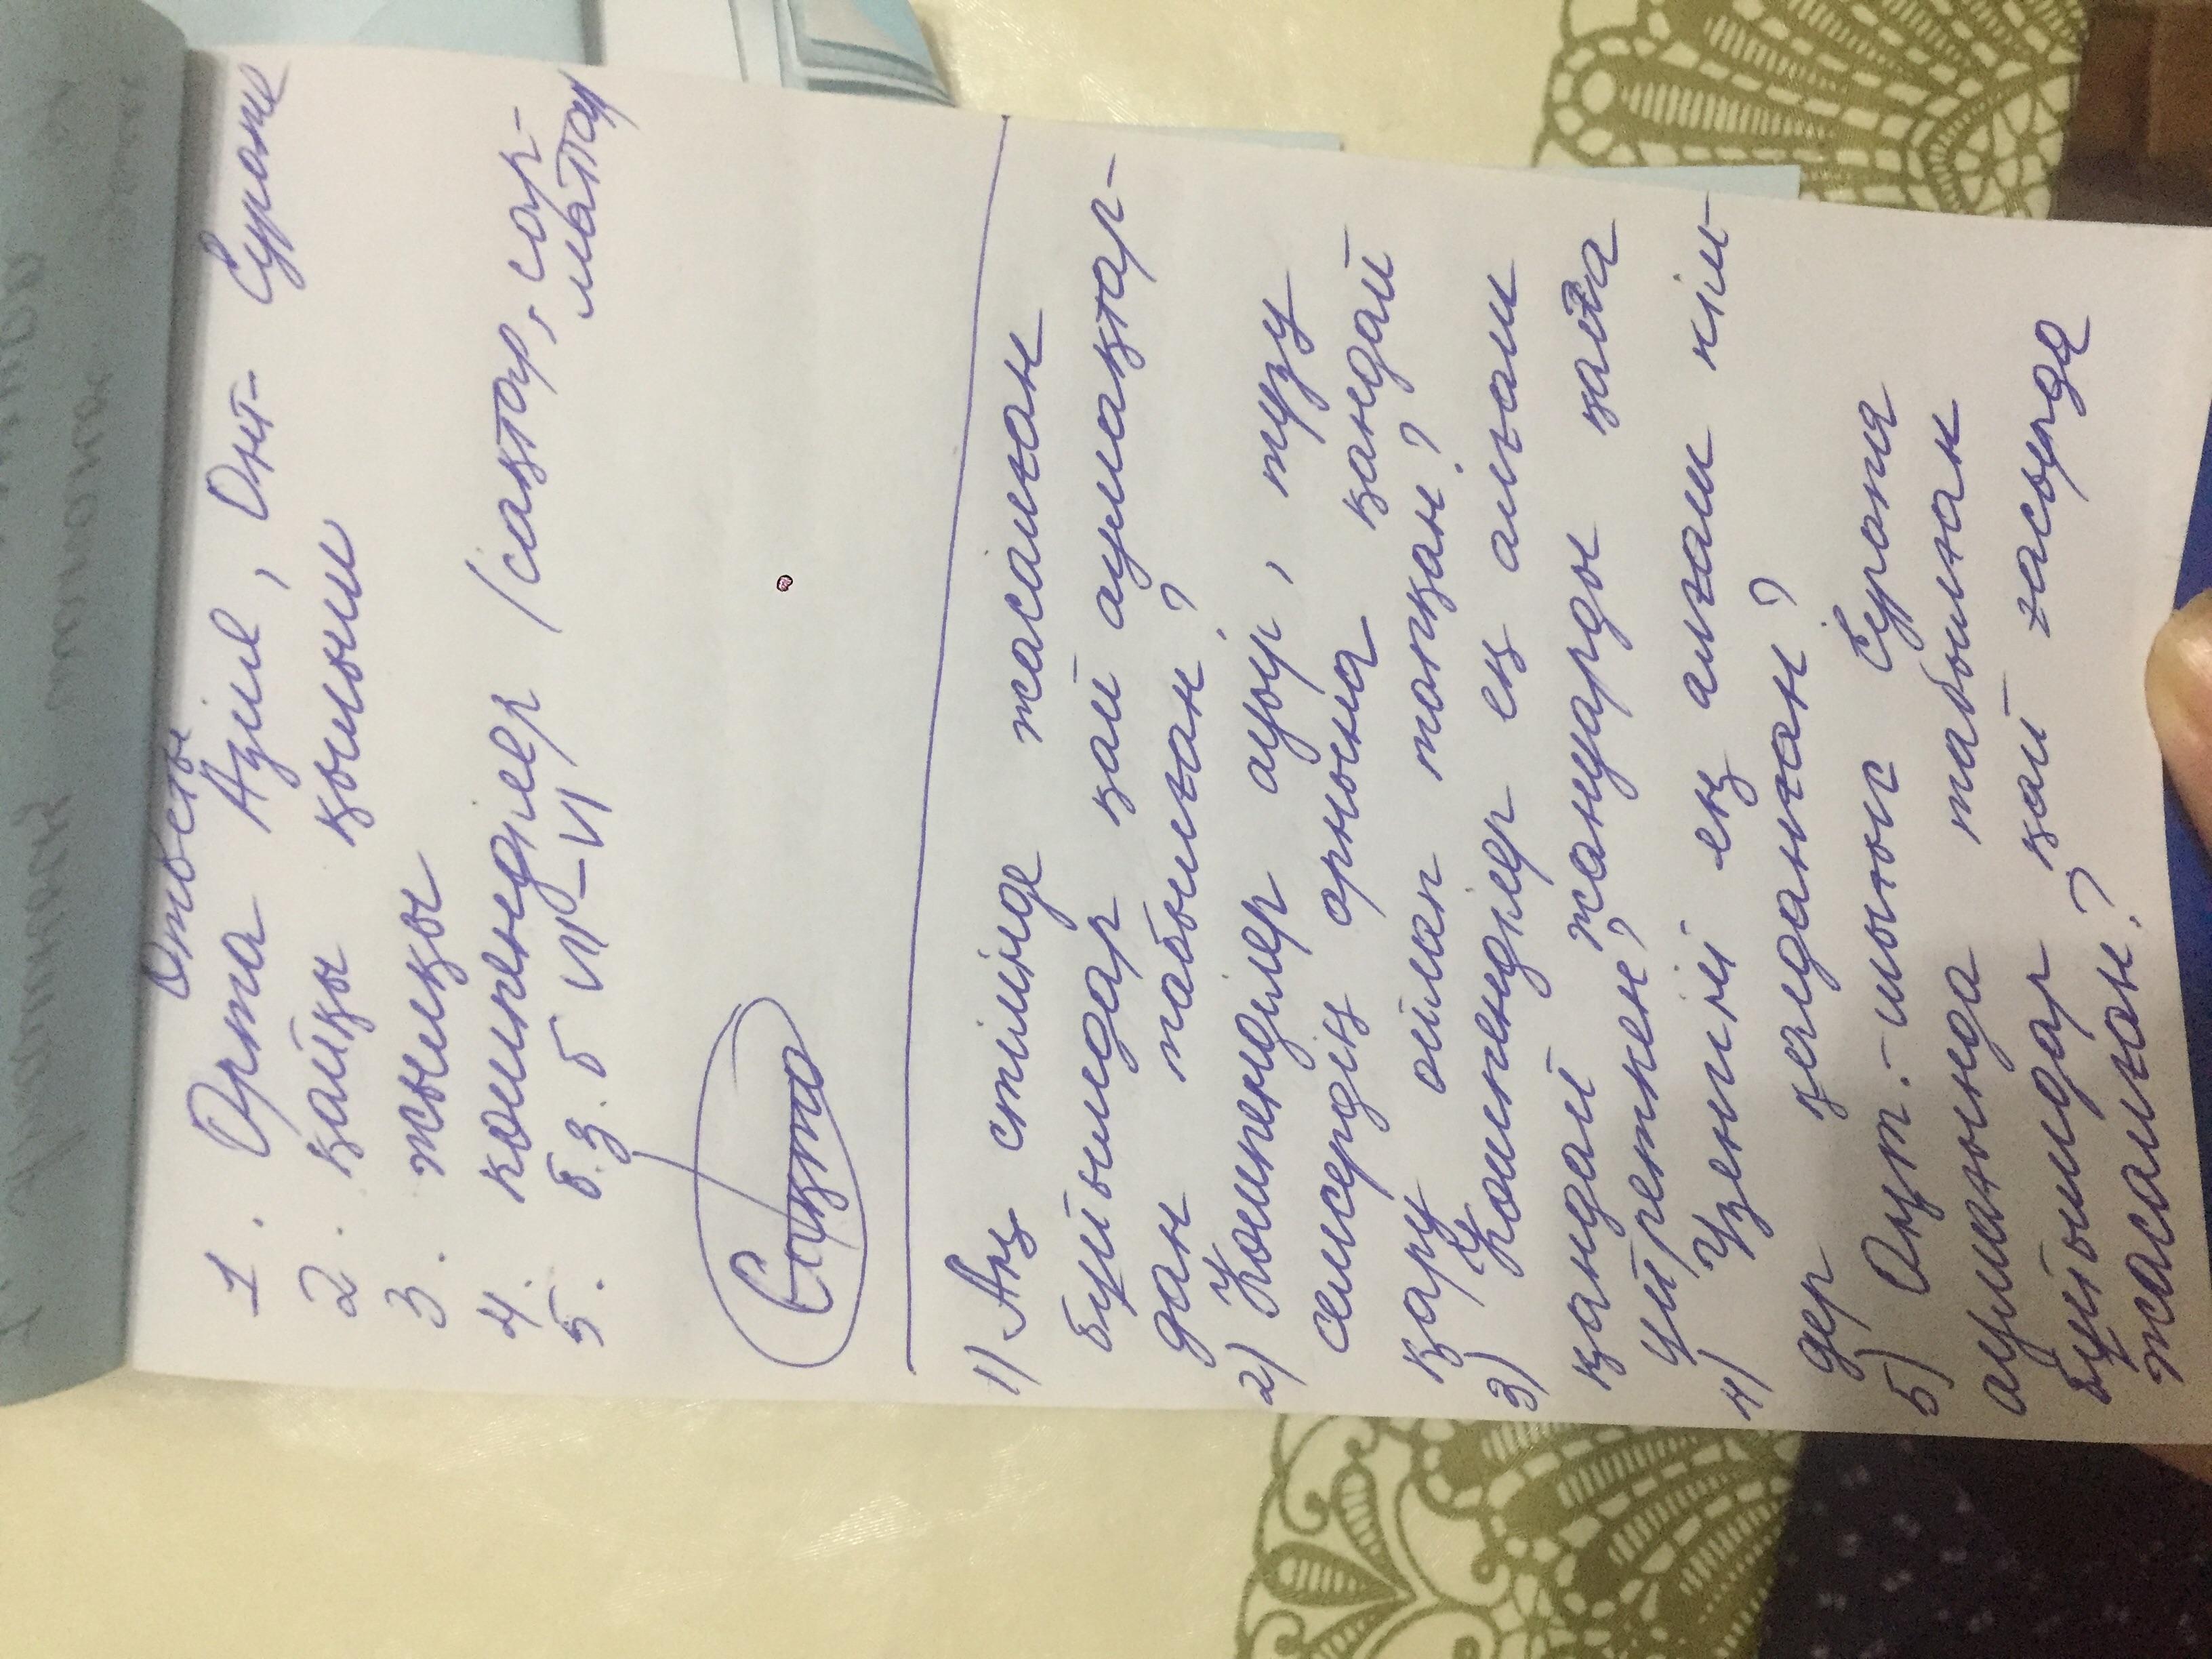 Ответы
1. Орта Азия, Оңт- Еуропа
2. қайқы қылыш
3. жылқы
4. көшпенділер (сақтар, сар-
маттар
5. б.з.б VII-VI
Сақтар
1) Аң стилінде жасалған
бұйымдар қай аумақтар-
дан табылған?
2) Көшпенділер ауыр, түзу
семсердің орнына қандай
қару ойлап тапқан?
3) Көшпенділер ең алғаш
қандай жануарды қолға
үйреткен?
4) Үзеңгіні ең алғаш кім-
дер қолданған?
5) Оңт.-шығыс Еуропа
аумағында табылған
бұйымдар қай ғасырда
жасалған?